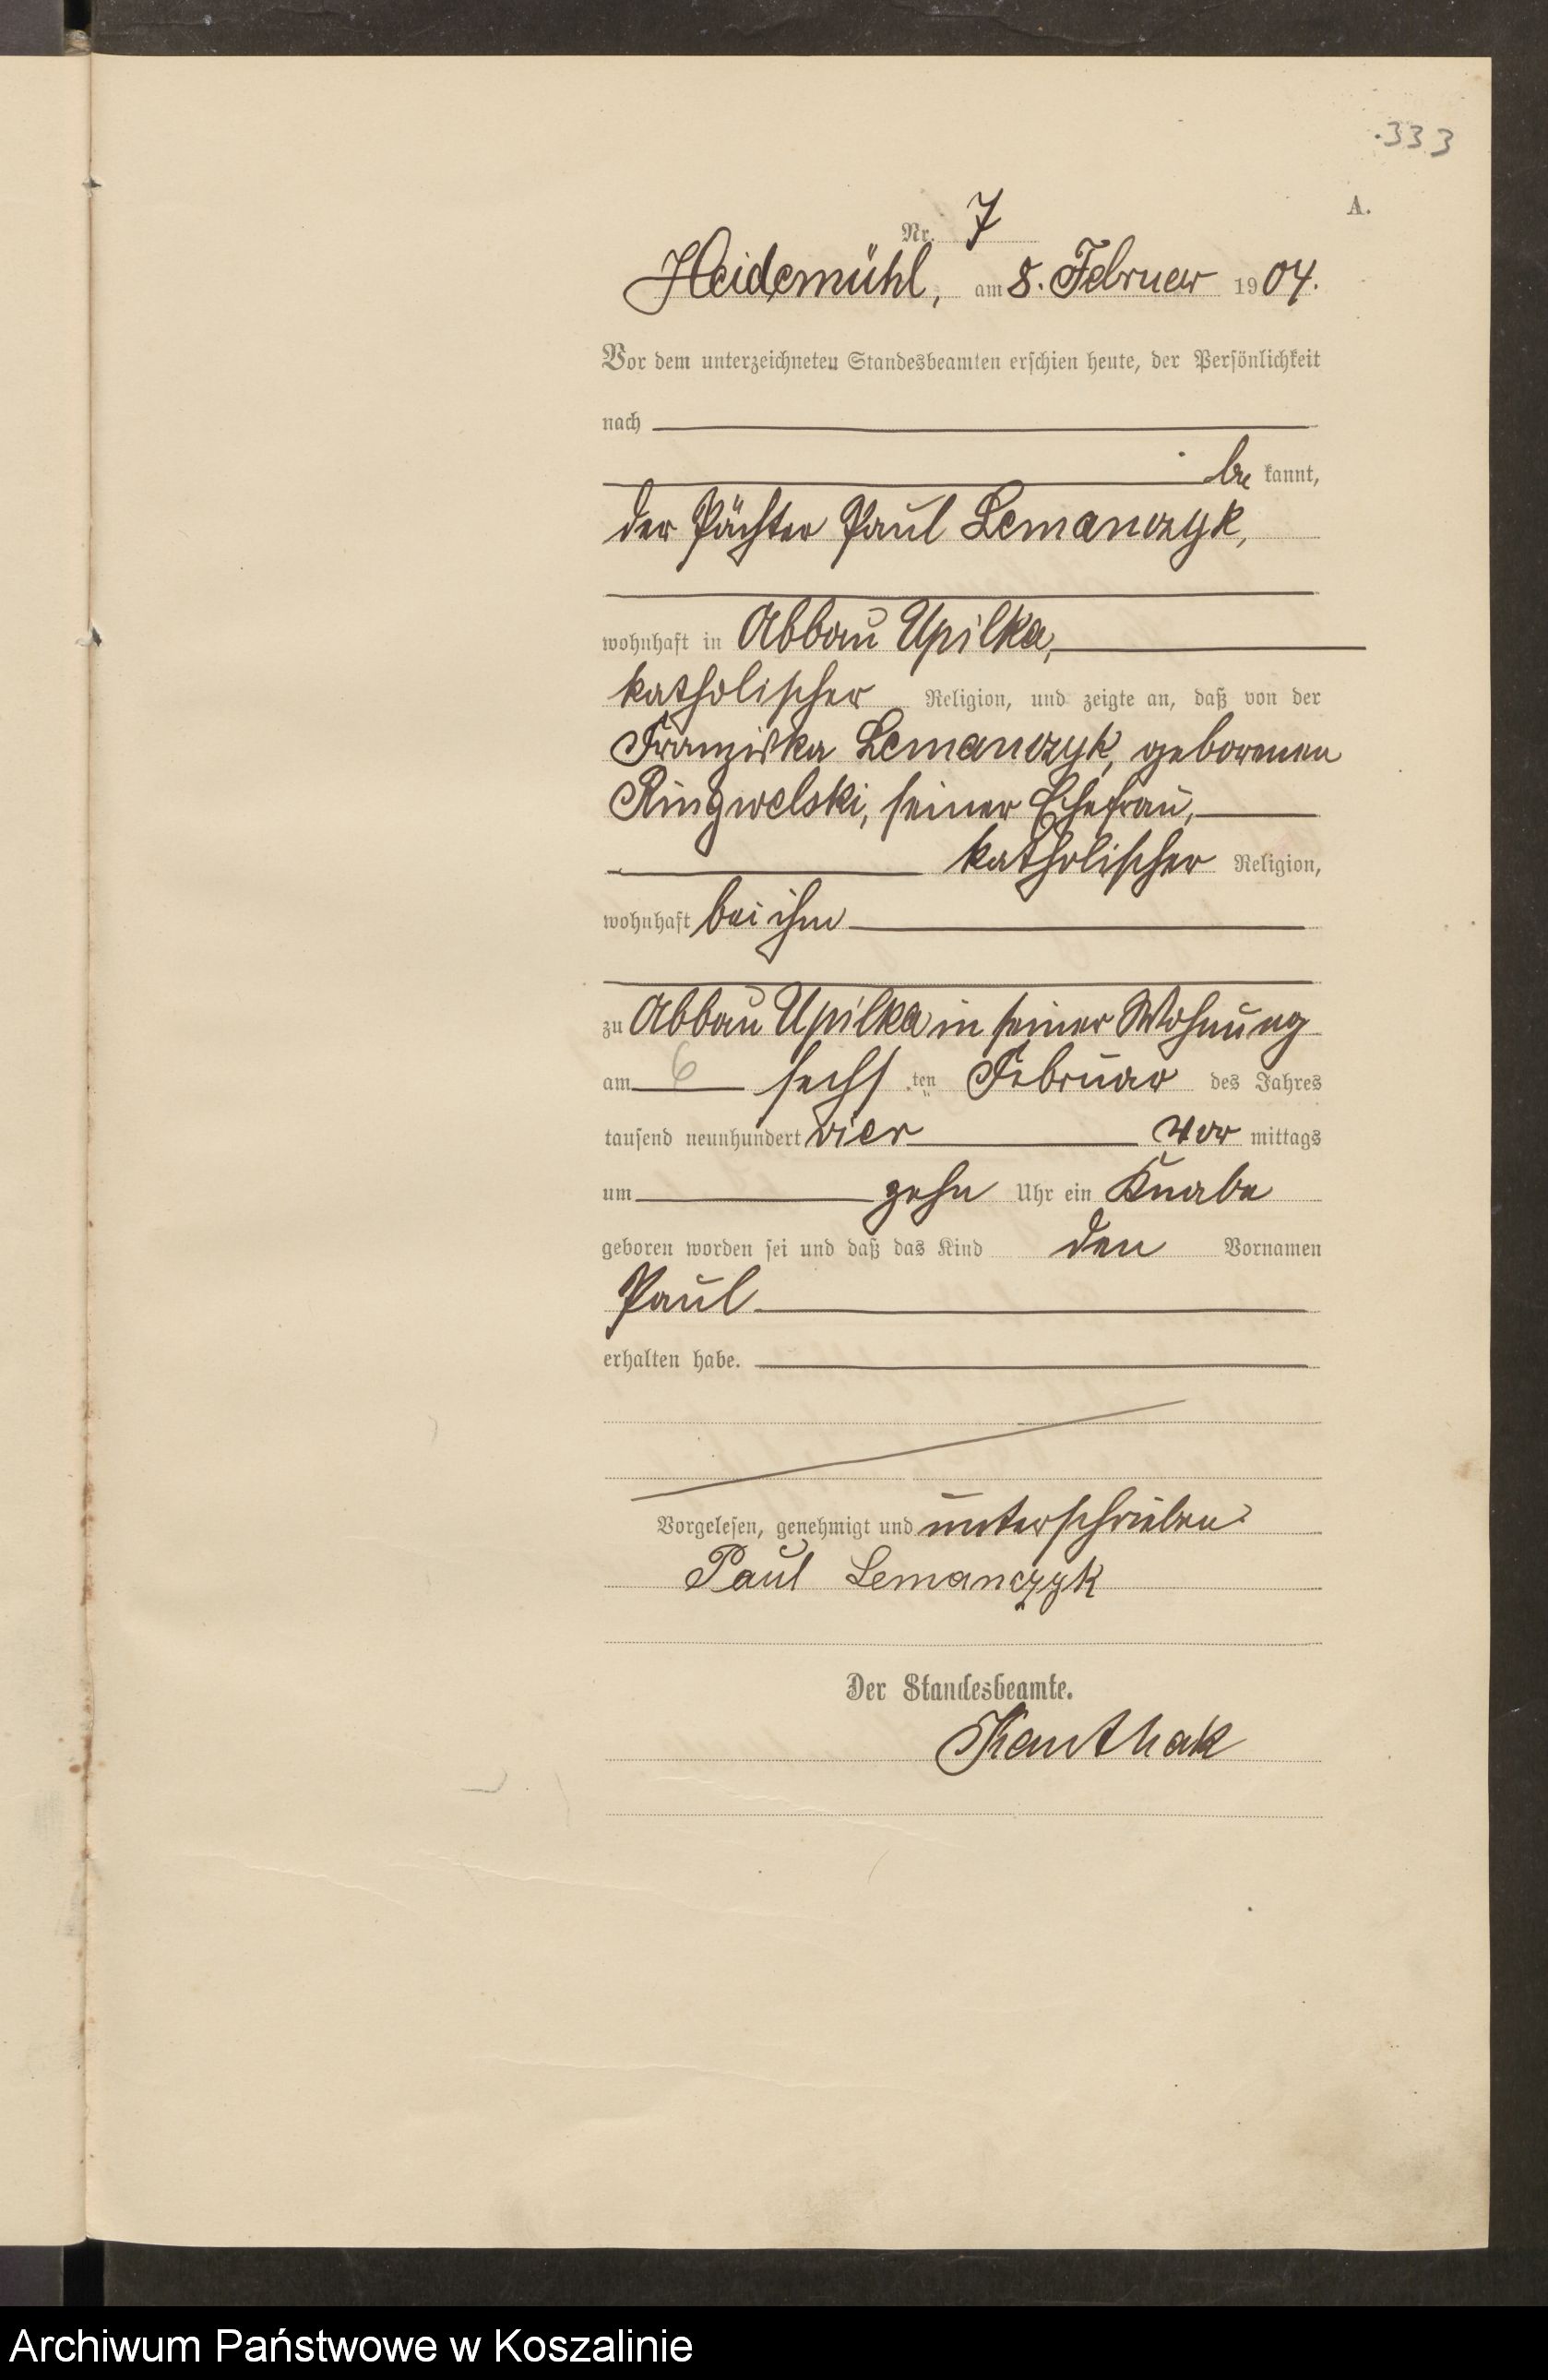 333
A.
Nr. 7
Heidemühl, am 8. Februar 1904.
Vor dem unterzeichneten Standesbeamten erschien heute, der Persönlichkeit
nach
be kannt,
der Pächter Paul Lemanczyk,
wohnhaft in Abbau Upilka,
katholischer Religion, und zeigte an, daß von der
Franziska Lemanczyk, geborenen
Ringwelski, seiner Ehefrau,
katholischer Religion,
wohnhaft bei ihm
zu Abbau Upilka in seiner Wohnung
am 6 sechs ten Februar des Jahres
tausend neunhundert vier vor mittags
um zehn Uhr ein Knabe
geboren worden sei und daß das Kind den Vornamen
Paul
erhalten habe.
Vorgelesen, genehmigt und unterschrieben
Paul Lemanczyk
Der Standesbeamte.
Kanthak
Archiwum Państwowe w Koszalinie